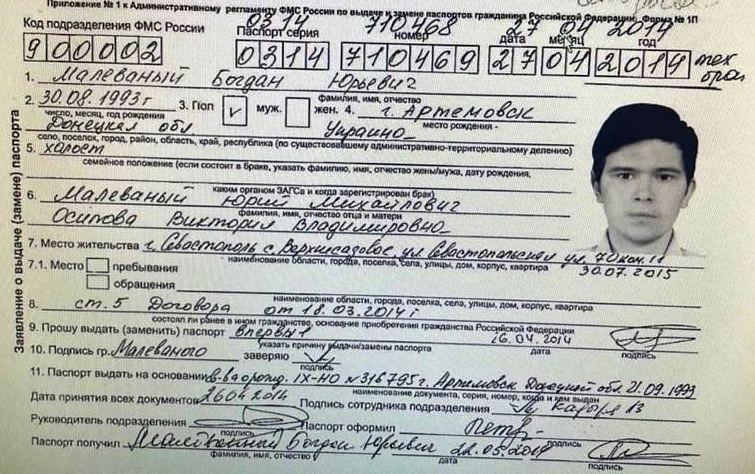 Приложение № 1 к Административному регламенту ФМС России по выдаче и замене паспортов гражданина Российской Федерации, Форма № 1П
Код подразделения ФМС России 0314 710468 27 04 2014
Паспорт серия номер дата месяц год
900002 0314 710469 27 04 2019 тех
1. Малеваный Богдан Юрьевич брак
фамилия, имя, отчество
2. 30.08.1993г 3. Пол муж. жен. 4. г. Артемовск
число, месяц, год рождения место рождения -
Донецкая обл Украина
село, поселок, город, район, область, край, республика (по существовавшему административно-территориальному делению)
5. холост
семейное положение (если состоит в браке, указать фамилию, имя, отчество жены/мужа, дату рождения,
каким органом ЗАГСа и когда зарегистрирован брак)
6. Малеваный Юрий Михайлович
фамилия, имя, отчество отца и матери
Осипова Виктория Владимировна
7. Место жительства г. Севастополь с. Верхнесадовое, ул Севастопольская
наименование области, города, поселка, села, улицы, дом, корпус, квартира
30.07.2015
7.1. Место пребывания
обращения
наименование области, города, поселка, села, улицы, дом, корпус, квартира
8. ст. 5 Договора от 18.03.2014г
состоял ли ранее в ином гражданстве, основание приобретения гражданства Российской Федерации
9. Прошу выдать (заменить) паспорт впервые 26.04.2014
указать причину выдачи/замены паспорта дата подпись
10. Подпись гр. Малеваного заверяю
подпись
11. Паспорт выдать на основании IX-НО № 316795 г. Артемовск Донецкой обл. 21.09.1993
наименование документа, серия, номер, когда и кем выдан
Дата принятия всех документов 26042014 Подпись сотрудника подразделения
Руководитель подразделения Паспорт оформил
подпись подпись
Паспорт получил Малеванный Богдан Юрьевич 22.05.2014
фамилия, имя, отчество дата подпись
Заявление о выдаче (замене) паспорта